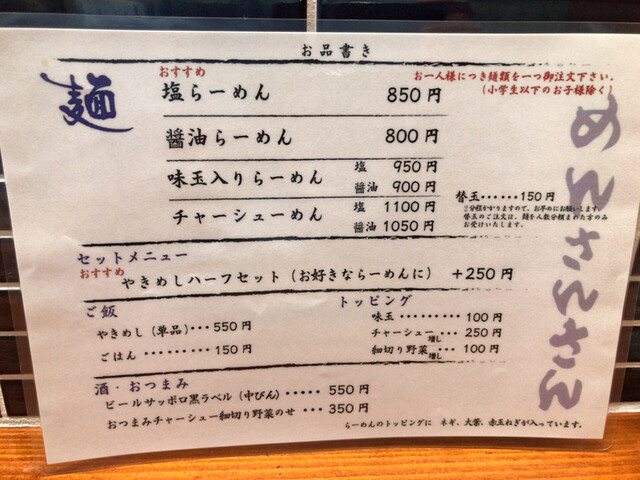 お品書き
麺
おすすめ
塩らーめん 850円
お一人様につき麺類を一つ御注文下さい。
(小学生以下のお子様除く)
醤油らーめん 800円
味玉入りらーめん 塩 950円
醤油 900円
チャーシューめん 塩 1100円
醤油 1050円
替玉‥‥‥150円
分程かかりますので、お早めにお願いします。
替玉のご注文は、麺を人数分頼まれた方のみ
お受けいたします。
めんさんさん
セットメニュー
おすすめ
やきめしハーフセット(お好きならーめんに) +250円
ご飯
やきめし(単品)‥‥550円
ごはん‥‥‥‥‥150円
トッピング
味玉‥‥‥‥‥100円
チャーシュー増し‥‥250円
細切り野菜増し‥‥100円
酒・おつまみ
ビールサッポロ黒ラベル(中びん)‥‥‥550円
おつまみチャーシュー細切り野菜のせ‥‥350円
らーめんのトッピングに ネギ、大葉、赤玉ねぎが入っています。